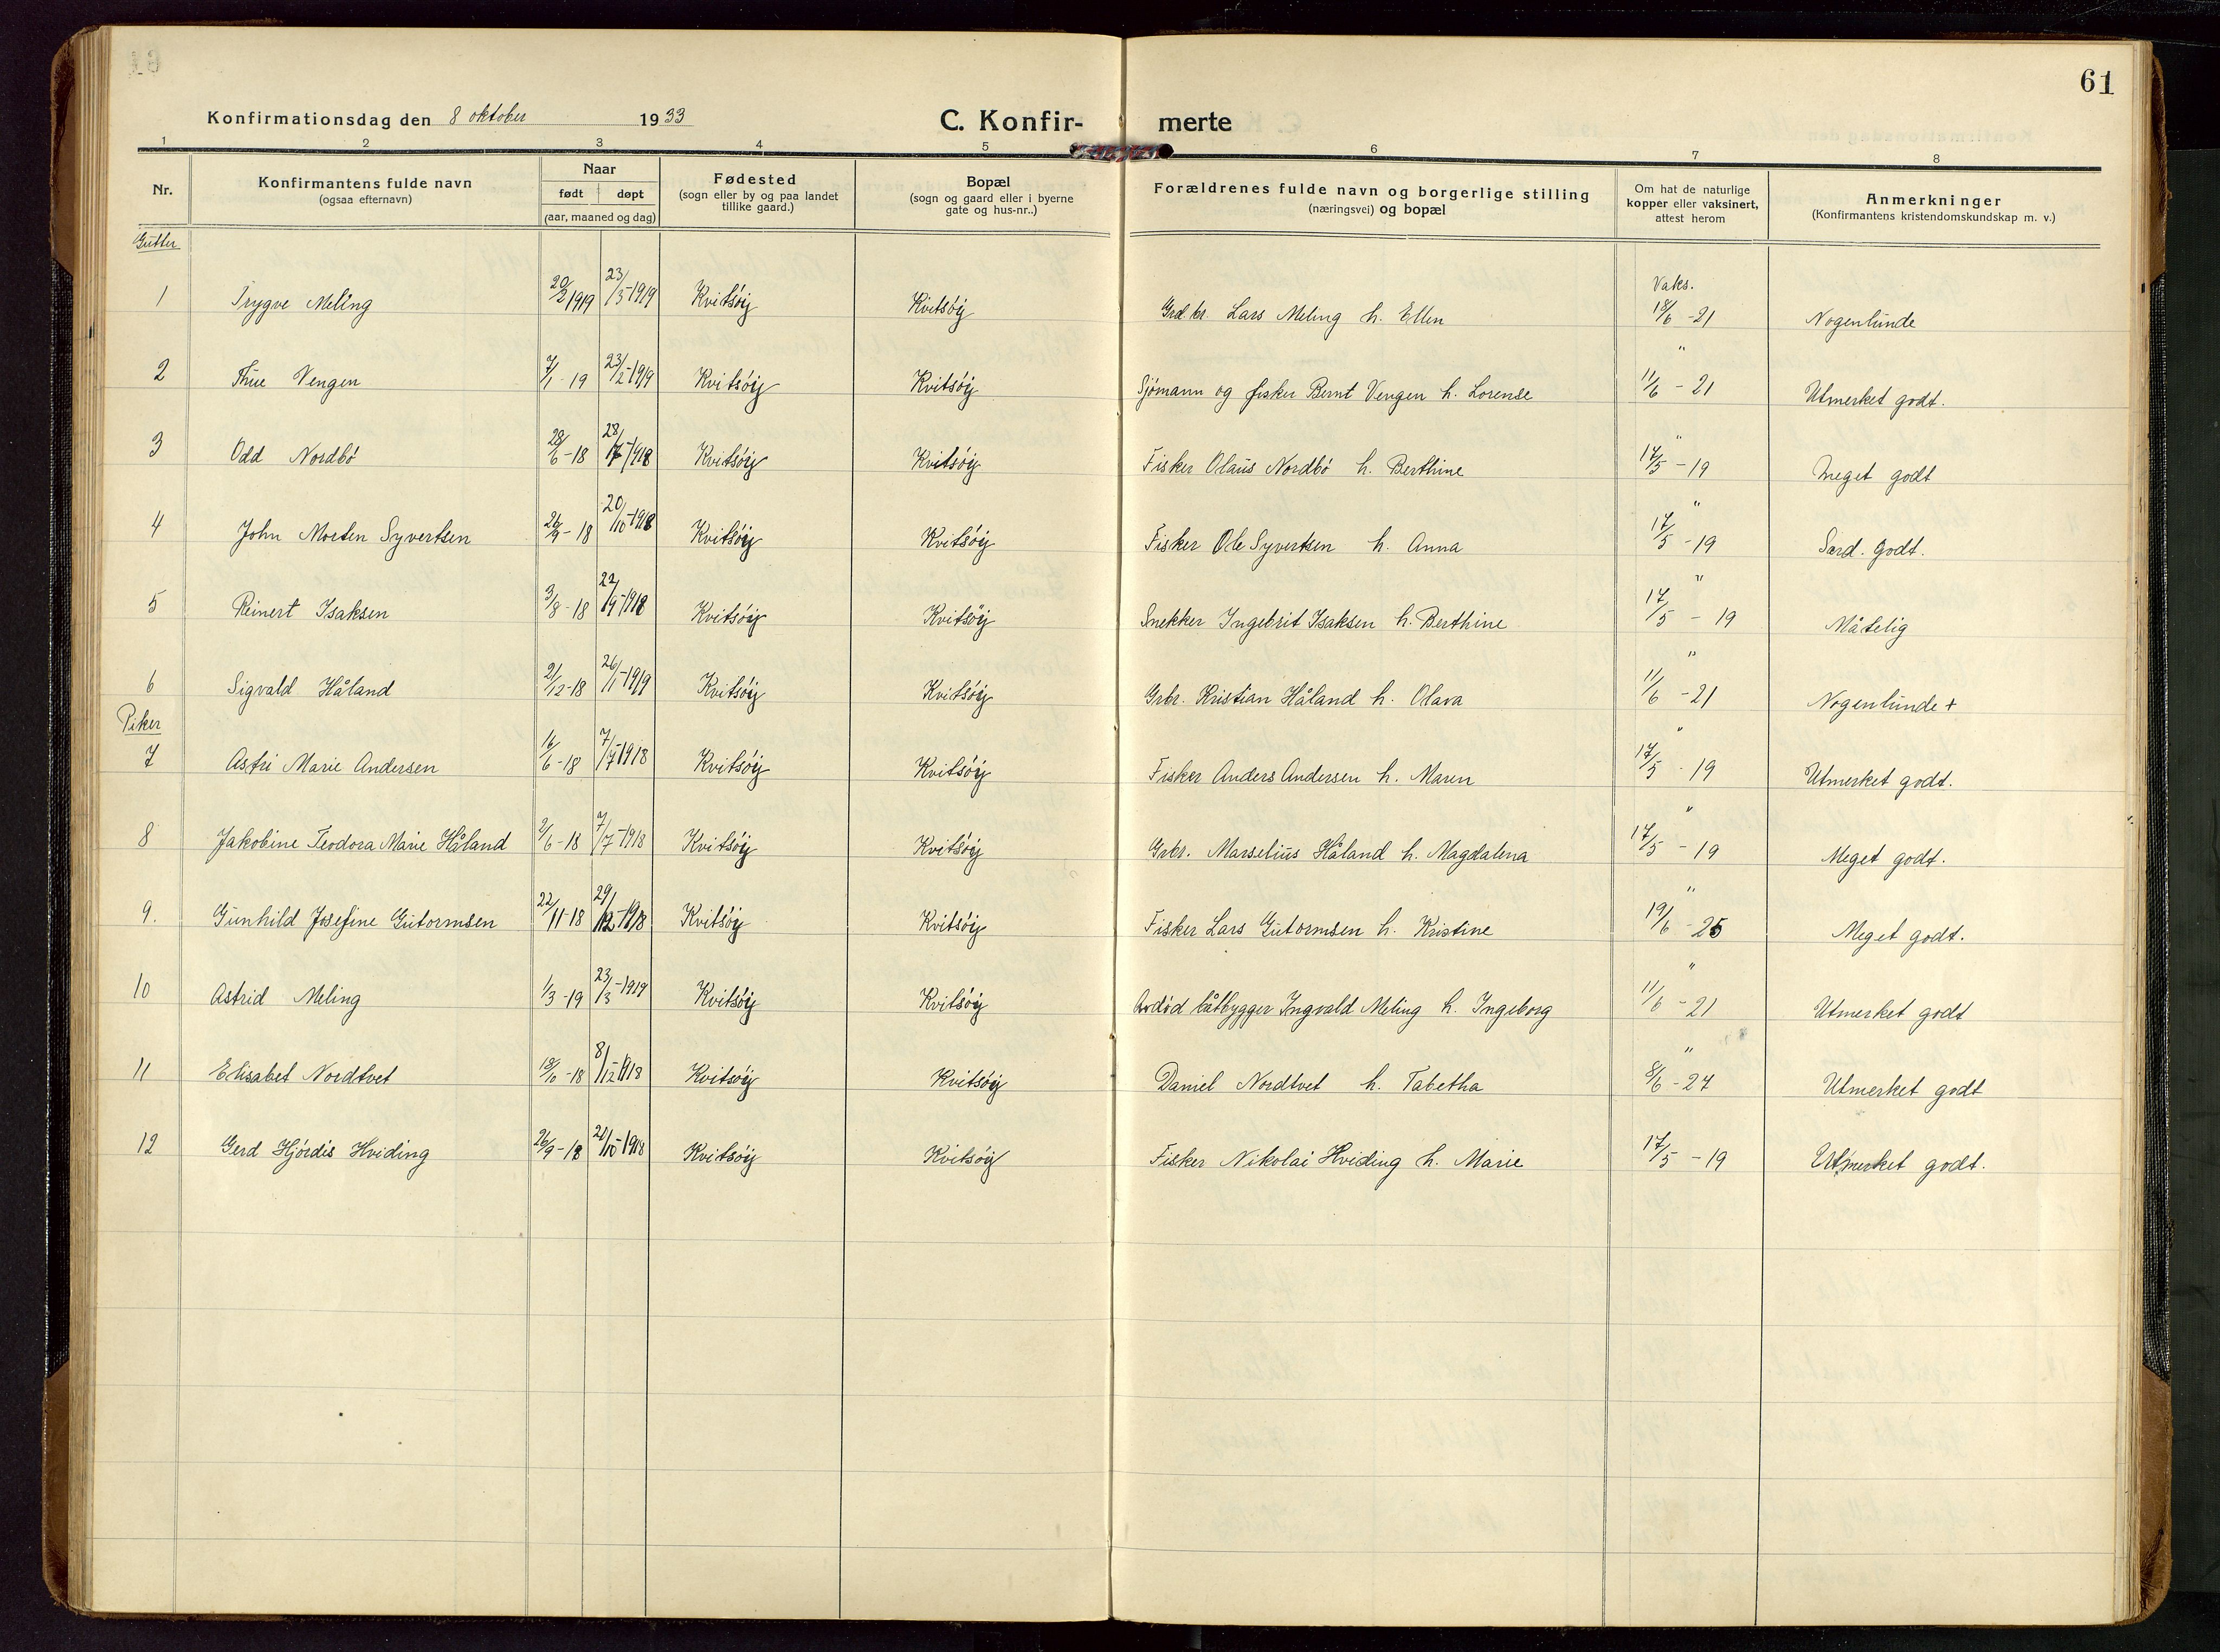 61
Konfirmationsdag den 8 oktober 1933 C. Konfir- merte
1 2 3 4 5 6 7 8
Nr. Konfirmantens fulde navn (ogsaa efternavn) Naar født døpt (aar, maaned og dag) Fødested (sogn eller by og paa landet tillike gaard.) Bopæl (sogn og gaard eller i byerne gate og hus-nr..) Forældrenes fulde navn og borgerlige stilling (næringsvei) og bopæl Om hat de naturlige kopper eller vaksinert, attest herom Anmerkninger (Konfirmantens kristendomskundskap m. v.)
Gutter
1 Trygve Meling 20/2 1919 23/3-1919 Kvitsöy Kvitsöy Grd.br. Lars Meling h. Ellen Vaks. 18/6 -21 Nogenlunde
2 Thue Vengen 7/1-19 23/2-1919 Kvitsöy Kvitsöy Sjömann og fisker Bernt Vengen h. Lorense " 11/6 - 21 Utmerket godt.
3 Odd Nordbö 28/6-18 28/7-1918 Kvitsöy Kvitsöy Fisker Olaus Nordbö h. Berthine " 17/5 - 19 Meget godt
4 John Morten Syvertsen 26/9-18 20/10-1918 Kvitsöy Kvitsöy Fisker Ole Syvertsen h. Anna " 17/5 -19 Særd. godt.
5 Reinert Isaksen 3/8-18 22/9-1918 Kvitsöy Kvitsöy Snekker Ingebrit Isaksen h. Berthine " 17/5 - 19 Måtelig
6 Sigvald Håland 2/12-18 26/1-1919 Kvitsöy Kvitsöy Grbr. Kristian Håland h. Olava " 11/6 -21 Nogenlunde +
Piker
7 Astri Marie Andersen 16/6-18 7/7-1918 Kvitsöy Kvitsöy Fisker Anders Andersen h. Maren " 17/5 - 19 Utmerket godt.
8 Jakobine Teodora Marie Håland 2/6-18 7/7-1918 Kvitsöy Kvitsöy Grbr. Marselius Håland h. Magdalena " 17/5 - 19 Meget godt.
9. Gunhild Josefine Gutormsen 22/11-18 29/12-1918 Kvitsöy Kvitsöy Fisker Lars Gutormsen h. Kristine " 19/6 -25 Meget godt.
10 Astrid Meling 1/3-19 23/3-1919 Kvitsöy Kvitsöy Avdöd båtbygger Ingvald Meling h. Ingeborg " 11/6 - 21 Utmerket godt
11 Elisabet Nordtvet 18/10-18 8/12-1918 Kvitsöy Kvitsöy Daniel Nordtvet h. Tabetha " 8/6 -24 Utmerket godt
12 Gerd Hjördis Hviding 26/9-18 /10-1918 Kvitsöy Kvitsöy Fisker Nikolai Hviding h. Marie 17/5 -19 Utmerket godt.